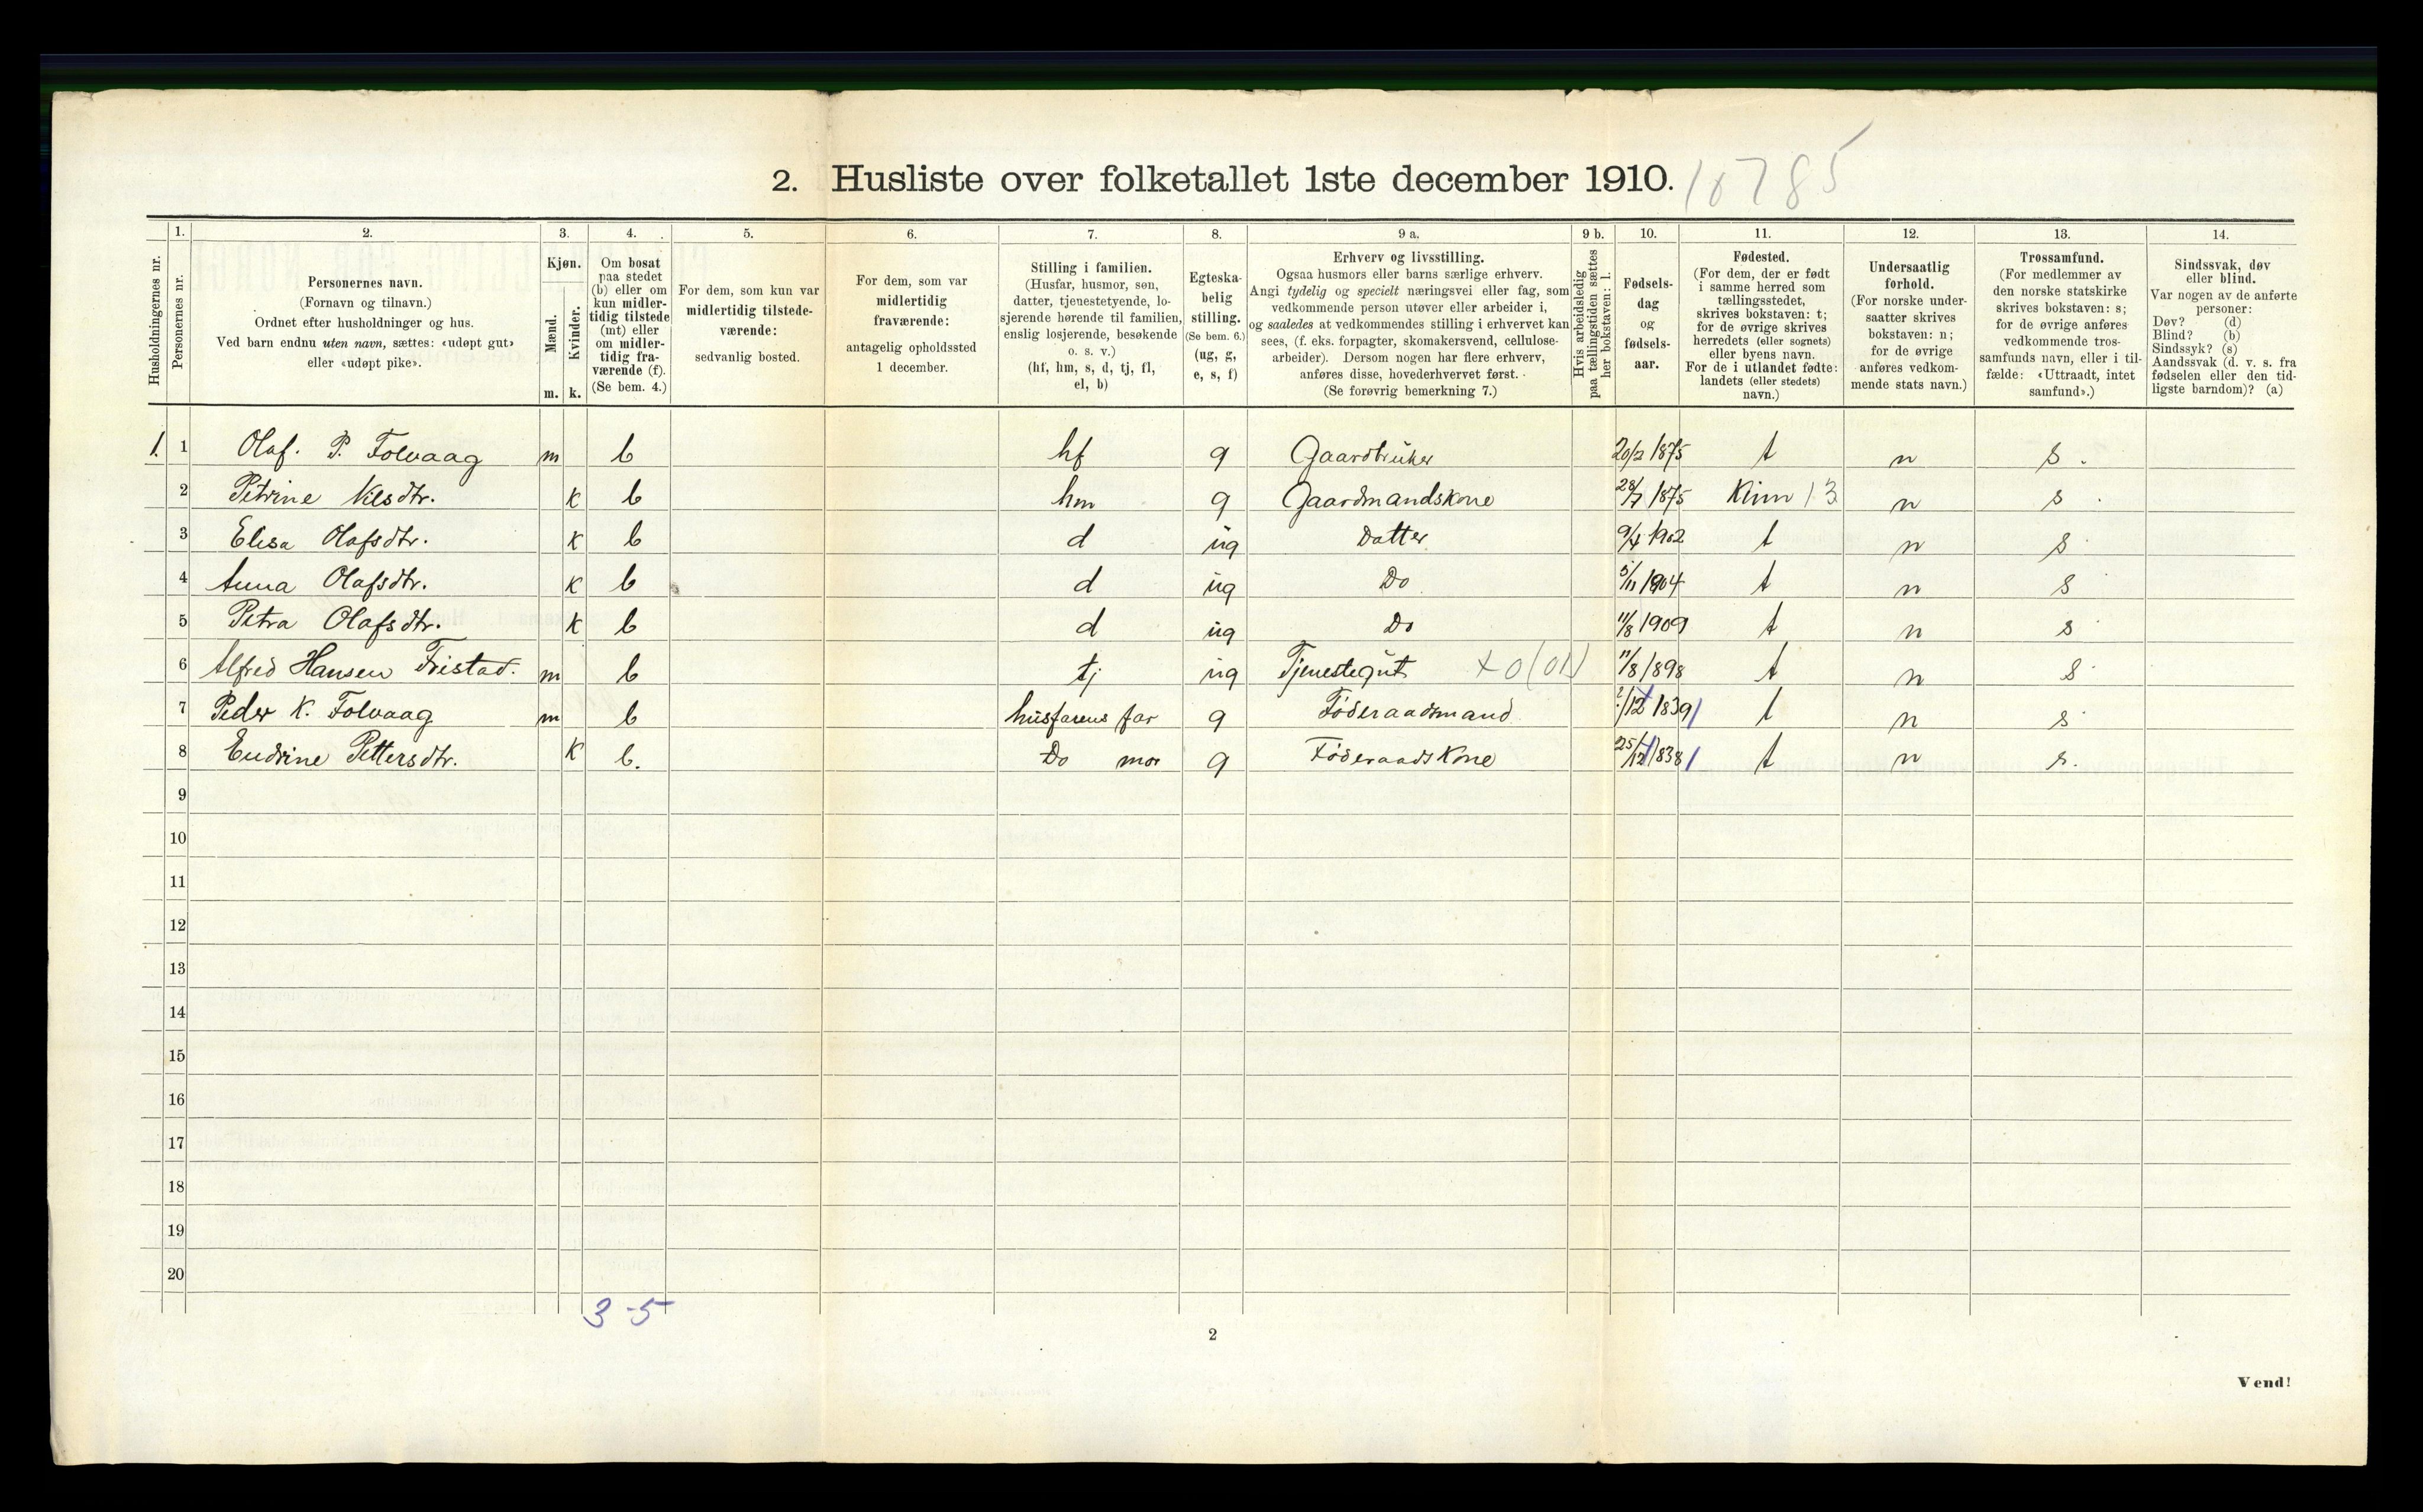 2. Husliste over folketallet 1ste december 1910. 10785
Husholdningernes nr.
1. Personernes nr.
2. Personernes navn.
(Fornavn og tilnavn.)
Ordnet efter husholdninger og hus.
Ved barn endnu uten navn, sættes: «udøpt gut»
eller «udøpt pike».
3. Kjøn.
Mænd. m.
Kvinder. k.
4. Om bosat
paa stedet
(b) eller om
kun midler-
tidig tilstede
(mt) eller
om midler-
tidig fra-
værende (f).
(Se bem. 4.)
5. For dem, som kun var
midlertidig tilstede-
værende:
sedvanlig bosted.
6. For dem, som var
midlertidig
fraværende:
antagelig opholdssted
1 december.
7. Stilling i familien.
(Husfar, husmor, søn,
datter, tjenestetyende, lo-
sjerende hørende til familien,
enslig losjerende, besøkende
o. s. v.)
(hf, hm, s, d, tj, fl,
el, b)
8. Egteska-
belig
stilling.
(Se bem. 6.)
(ug, g,
e, s, f)
9 a. Erhverv og livsstilling.
Ogsaa husmors eller barns særlige erhverv.
Angi tydelig og specielt næringsvei eller fag, som
vedkommende person utøver eller arbeider i,
og saaledes at vedkommendes stilling i erhvervet kan
sees, (f. eks. forpagter, skomakersvend, cellulose-
arbeider). Dersom nogen har flere erhverv,
anføres disse, hovederhvervet først.
(Se forøvrig bemerkning 7.)
9 b. Hvis arbeidsledig
paa tællingstiden sættes
her bokstaven: l.
10. Fødsels-
dag
og
fødsels-
aar.
11. Fødested.
(For dem, der er født
i samme herred som
tællingsstedet,
skrives bokstaven: t;
for de øvrige skrives
herredets (eller sognets)
eller byens navn.
For de i utlandet fødte:
landets (eller stedets)
navn.)
12. Undersaatlig
forhold.
(For norske under-
saatter skrives
bokstaven: n;
for de øvrige
anføres vedkom-
mende stats navn.)
13. Trossamfund.
(For medlemmer av
den norske statskirke
skrives bokstaven: s;
for de øvrige anføres
vedkommende tros-
samfunds navn, eller i til-
fælde: «Uttraadt, intet
samfund».)
14. Sindssvak, døv
eller blind.
Var nogen av de anførte
personer:
Døv? (d)
Blind? (b)
Sindssyk? (s)
Aandssvak (d. v. s. fra
fødselen eller den tid-
ligste barndom)? (a)
1. 1 Olaf. P. Folvaag m b hf g Gaardbruker 20/2 1875 t n s.
2 Petrine Nilsdtr. k b hm g Gaardmandskone 28/7 1875 Kinn 13 n s.
3 Elisa Olafsdtr. k b d ug Datter 9/4 1902 t n s
4 Anna Olafsdtr. k b d ug Do 5/11 1904 t n s
5 Petra Olafsdtr. k b d ug Do 11/8 1909 t n s
6 Alfred Hansen Tristad. m b tj ug Tjenestegut x0(01) 11/8 1898 t n s
7 Peder K. Folvaag m b husfarens far g Føderaadsmand ?/12 1839 t n s
8 Endrine Pettersdtr. k b. Do mor g Føderaadskone 25/12 1838 t n s.
9
10
11
12
13
14
15
16
17
18
19
20
3 - 5
2
Vend!